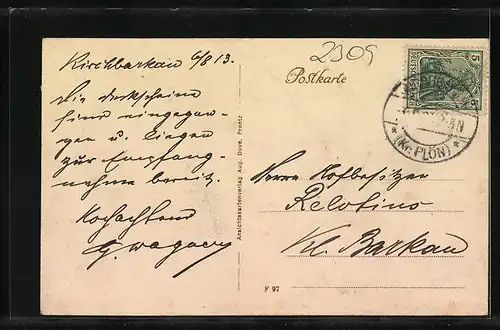 2309
Kirchbarkau 6/8 13.
Postkarte
5 5
Die
sind eingegan-
gen u. liegen
zur Empfang-
nahme bereit.
Hochachtend
Ansichtskartenverlag Aug. Duve, Preetz
* (Kr. PLÖN) *
Herrn Hofbesitzer
Relotius
Kl. Barkau
F 97